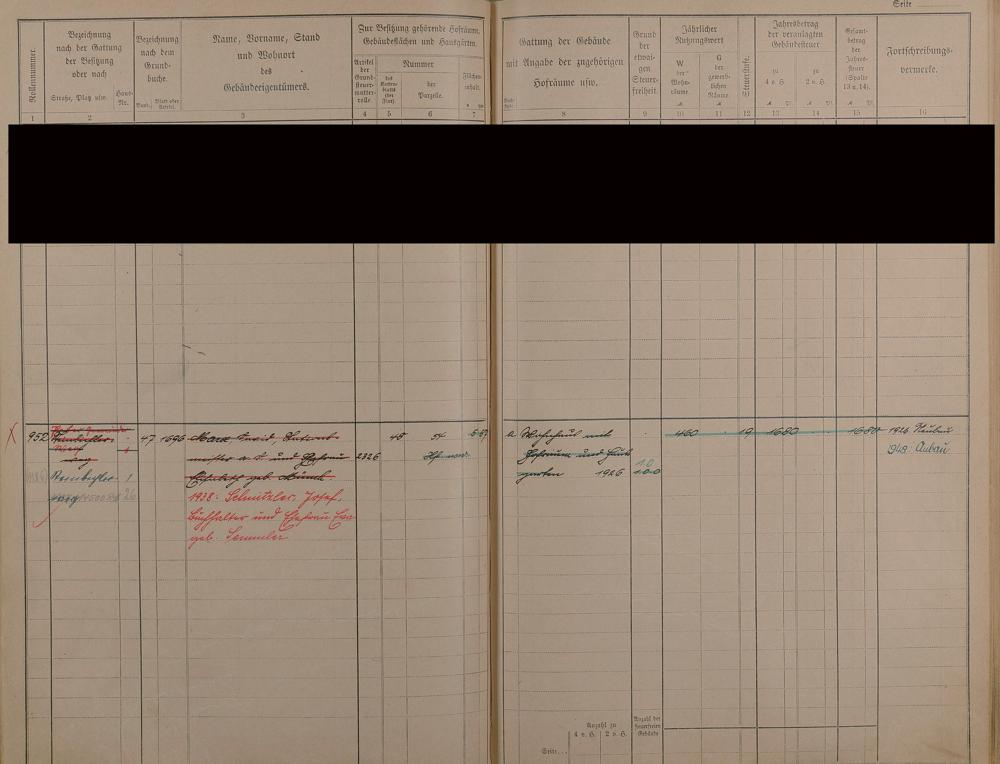 Seite
Rollennummer.
Bezeichnung
nach der Gattung
der Besitzung
oder nach
Straße, Platz usw.
Haus-
Nr.
Bezeichnung
nach dem
Grund-
buche.
Band.
Blatt oder
Artikel.
Name, Vorname, Stand
und Wohnort
des
Gebäudeeigentümers.
Zur Besitzung gehörende Hofräume,
Gebäudeflächen und Hausgärten.
Artikel
der
Grund-
steuer-
mutter-
rolle.
Nummer
des
Karten-
blatts
(der
Flur).
der
Parzelle.
Flächen-
inhalt.
Gattung der Gebäude
mit Angabe der zugehörigen
Hofräume usw.
Grund
der
etwai-
gen
Steuer-
freiheit.
Jährlicher
Nutzungswert
W
der
Wohn-
räume.
G
der
gewerb-
lichen
Räume.
Steuerstufe.
Jahresbetrag
der veranlagten
Gebäudesteuer
zu
4 v. H.
zu
2 v. H.
Gesamt-
betrag
der
Jahres-
steuer
(Spalte
13 u. 14).
Fortschreibungs-
vermerke.
1 2 3 4 5 6 7 8 9 10 11 12 13 14 15 16
952
weg
1
26
47 1696
Marx David,
meister a. D. und Ehefrau
geb.
1938: Schnitzler Josef,
Buchhalter und Ehefrau Eva
geb. Semmler
2326
48
54
a Wohnhaus mit
Hofraum und Haus
garten 1926
460 19 1680 1680
1926 Neubau
1949 Anbau
Anzahl zu
4 v. H. 2 v. H.
Anzahl der
steuerfreien
Gebäude
Seite...